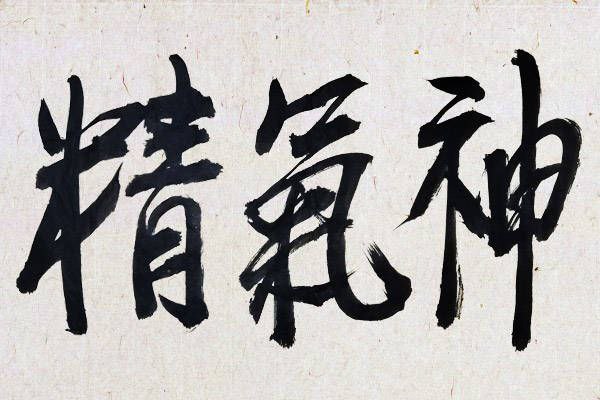 精氣神